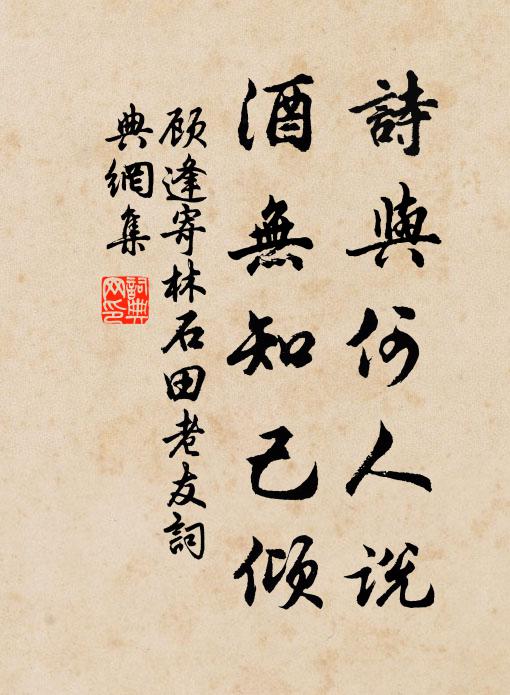 詩與何人説
酒無知己傾
顾逢寄林石田老友詞
典網集
詞典
网印